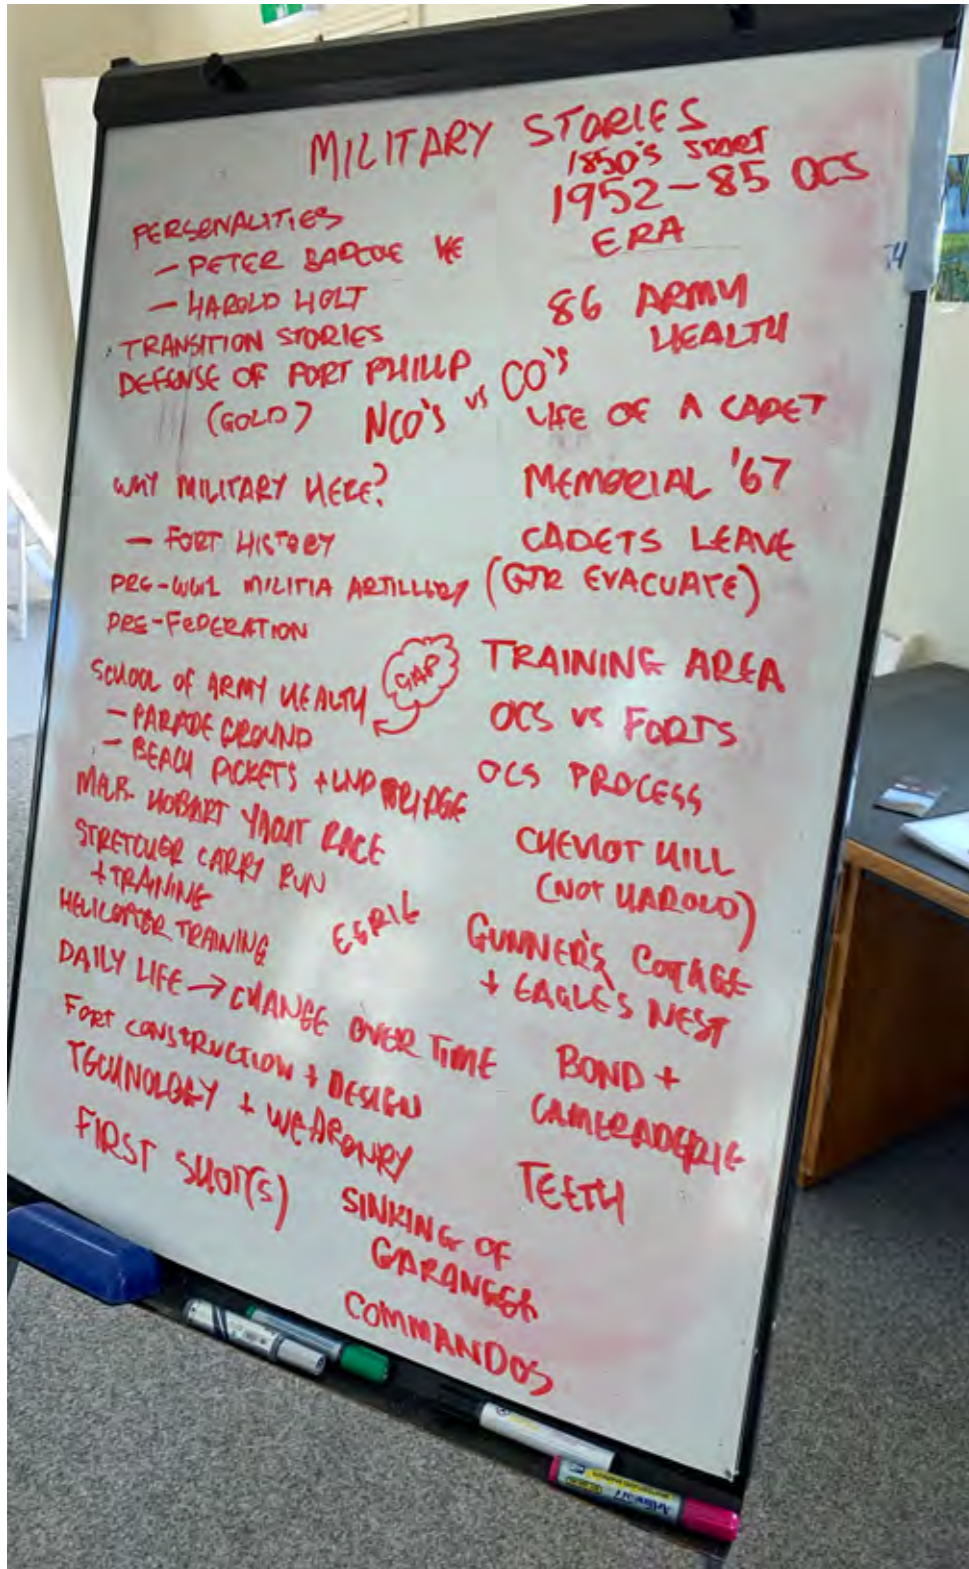 MILITARY STORIES
1850'S START
1952-85 OCS
ERA
PERSONALITIES
- PETER BADCOE VC
- HAROLD HOLT
TRANSITION STORIES
DEFENSE OF PORT PHILLIP
(GOLD)
NCO'S vs CO'S
WHY MILITARY HERE?
- FORT HISTORY
PRE-WW1 MILITIA ARTILLERY
PRE-FEDERATION
SCHOOL OF ARMY HEALTH
GAP
- PARADE GROUND
- BEACH PICKETS + LND BRIDGE
MELB. HOBART YACHT RACE
STRETCHER CARRY RUN
+ TRAINING
HELICOPTER TRAINING
DAILY LIFE → CHANGE OVER TIME
FORT CONSTRUCTION + DESIGN
TECHNOLOGY + WEAPONRY
FIRST SHOT(S)
86 ARMY
HEALTH
LIFE OF A CADET
MEMORIAL '67
CADETS LEAVE
(GTR EVACUATE)
TRAINING AREA
OCS vs FORTS
OCS PROCESS
CHEVIOT HILL
(NOT HAROLD)
GUNNER'S COTTAGE
+ EAGLE'S NEST
BOND +
CAMERADERIE
TEETH
SINKING OF
COMMANDOS